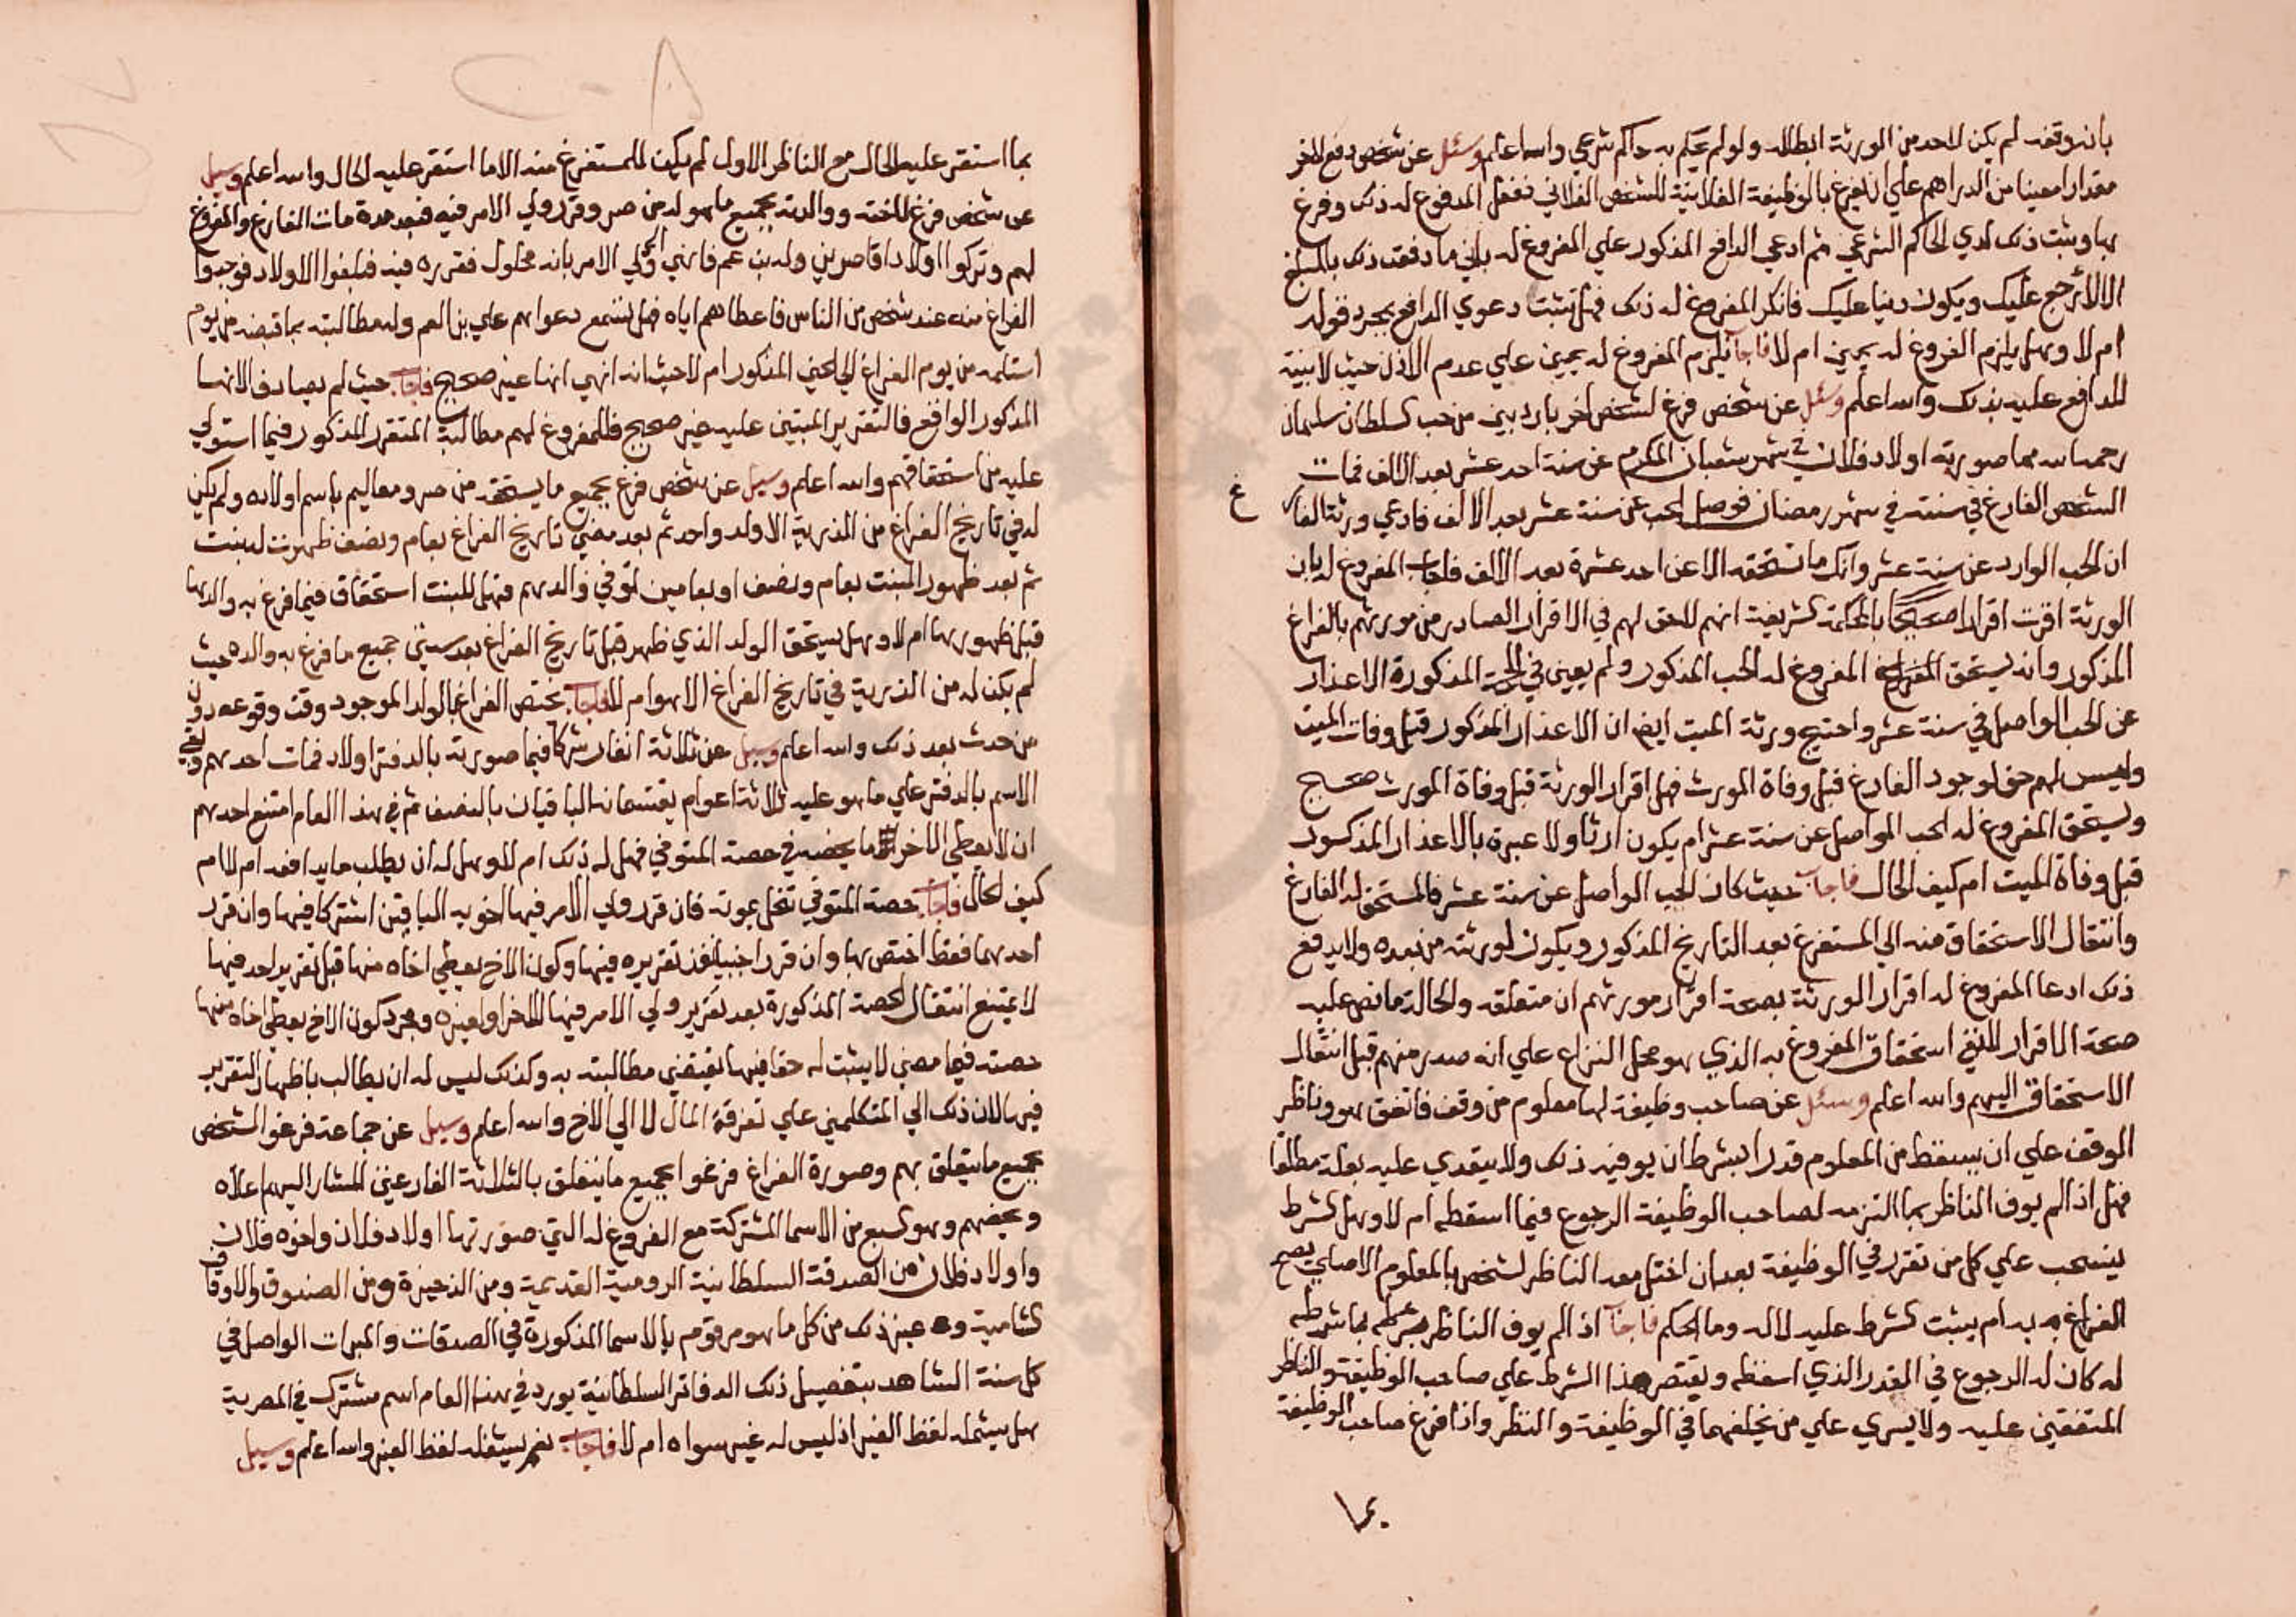 بانه وقف لم يكن لاحد من الورثة ابطاله ولو لم يحكم به حاكم شرعي والله اعلم وسئل عن شخص دفع لاخر
مقدارا معينا من الدراهم علي ان يفرغ بالوظيفة الفلانية للشخص الفلاني ففعل المدفوع له ذلك وفرغ
بها وثبت ذلك لدي الحاكم الشرعي ثم ادعي الدافع المذكور علي المفروغ له باني ما دفعت ذلك بالمبلغ
الا لارجع عليك ويكون دينا عليك فانكر المفروغ له ذلك فهل تثبت دعوي الدافع بمجرد قوله
ام لا وهل يلزم المفروغ له يمين ام لا فاجاب يلزم المفروغ له يمين علي عدم الاذن حيث لا بينة
للدافع عليه بذلك والله اعلم وسئل عن شخص فرغ لشخص اخر باردبين من حب السلطان سليمان
رحمه الله مما صورته اولاد فلان في شهر شعبان المكرم عن سنة احد عشر بعد الالف فمات
الشخص الفارغ في سنته في شهر رمضان فوصل الحب عن سنة عشر بعد الالف فادعي ورثة الفارغ
ان الحب الوارد عن سنة عشر وانك ما تستحقه الا عن احد عشرة بعد الالف فاجاب المفروغ له بان
الورثة اقرت اقرارا صحيحا بالمحكمة الشريفة انهم لا حق لهم في الاقرار الصادر من مورثهم بالفراغ
المذكور وانه يستحق المفروغ له الحب المذكور ولم يعين في الحجة المذكورة الاعذار
عن الحب الواصل في سنة عشر واحتج ورثة الميت ايضا ان الاعذار المذكور قبل وفات الميت
وليس لهم حق لوجود الفارغ قبل وفاة المورث فهل اقرار الورثة قبل وفاة المورث صحيح
ويستحق المفروغ له الحب الواصل عن سنة عشر ام يكون ارثا ولا عبرة بالاعذار المذكور
قبل وفاة الميت ام كيف الحال فاجاب حيث كان الحب الواصل عن سنة عشر فالمستحق له الفارغ
وانتقال الاستحقاق منه الي المستفرغ بعد التاريخ المذكور ويكون لورثته من بعده ولا يدفع
ذلك ادعا المفروغ له اقرار الورثة بصحة اقرار مورثهم ان متعلقه والحالة ما نص عليه
صحة الاقرار لا نفي استحقاق المفروغ به الذي هو محل النزاع علي انه صدر منهم قبل انتقال
الاستحقاق اليهم والله اعلم وسئل عن صاحب وظيفة لها معلوم من وقف فاتفق هو وناظر
الوقف علي ان يسقط من المعلوم قدرا بشرط ان يوفيه ذلك ولا يتعدي عليه بعلة مطلقا
فهل اذا لم يوف الناظر بما التزمه لصاحب الوظيفة الرجوع فيما اسقطه ام لا وهل الشرط
ينسحب علي كل من تقرر في الوظيفة بعد ان اختل معه الناظر لشخص بالمعلوم الاصلي يصح
الفراغ به ام يثبت الشرط عليه لا له وما الحكم فاجاب اذا لم يوف الناظر بشرطه بما شرطه
له كان له الرجوع في القدر الذي اسقطه ويقتصر هذا الشرط علي صاحب الوظيفة والناظر
المتفقين عليه ولا يسري علي من يخلفهما في الوظيفة والنظر واذا فرغ صاحب الوظيفة
بما
بما استقر عليه الحال مع الناظر الاول لم يكن للمستفرغ منه الا ما استقر عليه الحال والله اعلم وسيل
عن شخص فرغ لاخته ووالدته بجميع ما هو له من صر وقرر ولي الامر فيه فبعد مدة مات الفارغ والمفروغ
لهم وتركوا اولادا قاصرين وله بن عم فانهي الي ولي الامر بانه محلول فقرره فيه فبلغوا الاولاد فوجدوا
الفراغ منه عند شخص من الناس فاعطاهم اياه فهل تسمع دعواهم علي بن العم وله مطالبته بما قبضه من يوم
استلمه من يوم الفراغ الي الحين المذكور ام لا حيث انه انهي انها غير صحيح فاجاب حيث لم يصادف الانها
المذكور الواقع فالتقرير المبتني عليه غير صحيح فللمفروغ لهم مطالبة المتقرر المذكور فيما استولي
عليه من استحقاقهم والله اعلم وسيل عن شخص فرغ بجميع ما يستحقه من صر ومعاليم باسم اولاده ولم يكن
له في تاريخ الفراغ من الذرية الا ولد واحد ثم بعد مضي تاريخ الفراغ بعام ونصف ظهرت له بنت
ثم بعد ظهور البنت بعام ونصف او بعامين توفي والدهم فهل للبنت استحقاق فيما فرغ به والدها
قبل ظهورها ام لا وهل يستحق الولد الذي ظهر قبل تاريخ الفراغ بعد سنتين جميع ما فرغ به والده حيث
لم يكن له من الذرية في تاريخ الفراغ الا هو ام لا فاجاب يختص الفراغ بالولد الموجود وقت وقوعه دون
من حدث بعد ذلك والله اعلم وسيل عن ثلاثة انفار شركا فيما صورته بالدفتر اولاد فمات احدهم وبقي
الاسم بالدفتر علي ما هو عليه ثلاثة اعوام يقتسمانه الباقيان بالنصف ثم في هذا العام امتنع احدهم
ان لا يعطي الاخر ما يخصه في حصة المتوفي فهل له ذلك ام لا وهل له ان يطلب ما يدافعه ام لا ام
كيف الحال فاجاب حصة المتوفي تنحل بموته فان قرر ولي الامر فيها اخويه الباقيين اشتركا فيها وان قرر
احدهما فقط اختص بها وان قرر اجنبيا نفذ تقريره فيها وكون الاخ يعطي اخاه منها قبل تقرير احد فيها
لا يمنع انتقال الحصة المذكورة بعد تقرير ولي الامر فيها للاخر او لغيره ومجرد كون الاخ يعطي اخاه منها
حصته فيما مضي لا يثبت له حقا فيها تقتضي مطالبته به وكذلك ليس له ان يطالب باظهار التقرير
فيها لان ذلك الي المتكلمين علي تفرقة المال لا الي الاخ والله اعلم وسيل عن جماعة فرغو الشخص
بجميع ما يتعلق بهم وصورة الفراغ فرغوا بجميع ما يتعلق بالثلاثة الفارغين المشار اليهم اعلاه
وبخصهم وهو السبع من الاسما المشتركة مع المفروغ له التي صورتها اولاد فلان واخوه فلان
واولاد فلان من الصدقة السلطانية الرومية القديمة ومن الذخيرة ومن الصندوق والاوقاف
الشامية وغير ذلك من كل ما هو مرقوم بالاسما المذكورة في الصدقات والمبرات الواصل في
كل سنة الشاهد بتفصيل ذلك الدفاتر السلطانية يورد في هذا العام اسم مشترك في المصرية
هل يشمله لفظ الغير اذ ليس له غير سواه ام لا فاجاب نعم يشمله لفظ الغير والله اعلم وسيل